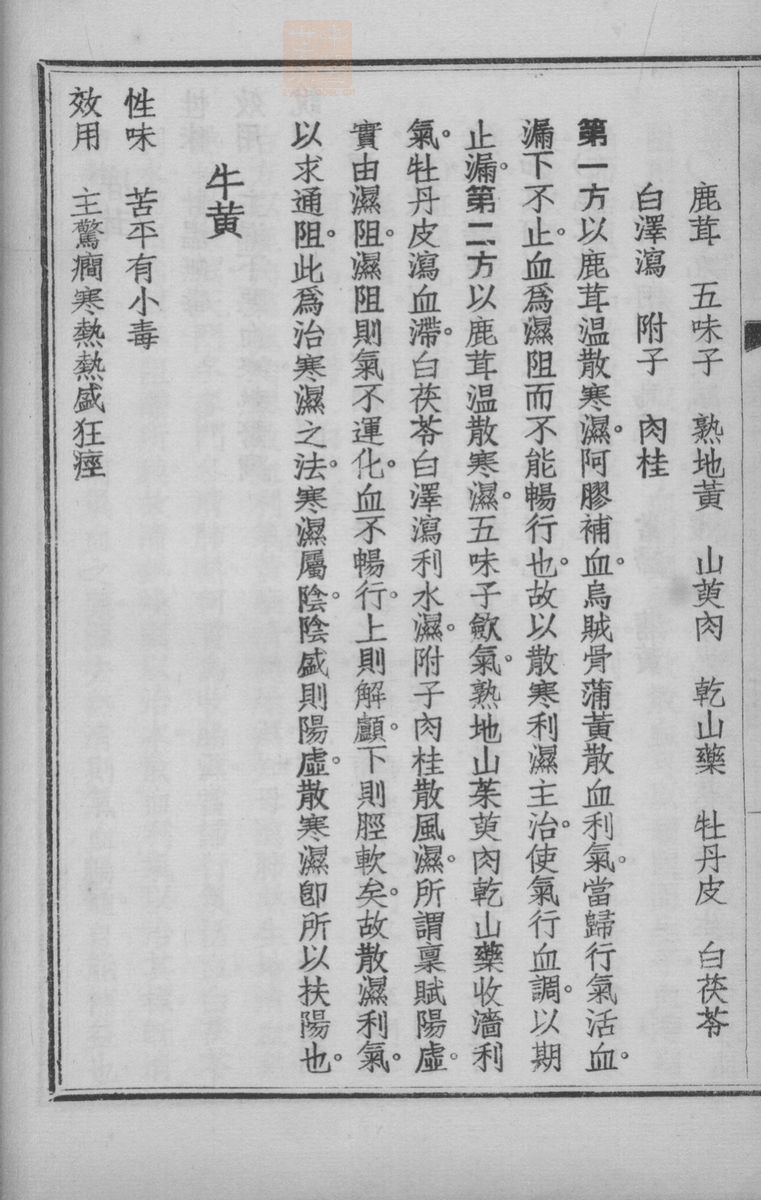 鹿茸　五味子　熟地黃　山萸肉　乾山藥　牡丹皮　白茯苓
白澤瀉　附子　肉桂
第一方以鹿茸温散寒濕。阿膠補血。烏賊骨蒲黃散血利氣。當歸行氣活血。
漏下不止。血爲濕阻而不能暢行也。故以散寒利濕主治。使氣行血調。以期
止漏。第二方以鹿茸温散寒濕。五味子歛氣。熟地山茱萸肉乾山藥收濇利
氣。牡丹皮瀉血滯。白茯苓白澤瀉利水濕。附子肉桂散風濕。所謂稟賦陽虛。
實由濕阻。濕阻則氣不運化。血不暢行。上則解顱。下則脛軟矣。故散濕利氣。
以求通阻。此爲治寒濕之法。寒濕屬陰。陰盛則陽虛。散寒濕卽所以扶陽也。
牛黃
性味　苦平有小毒
效用　主驚癎寒熱熱盛狂痙